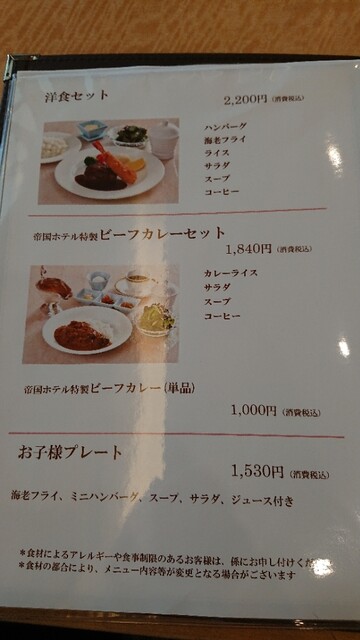 洋食セット
2,200円(消費税込)
ハンバーグ
海老フライ
ライス
サラダ
スープ
コーヒー
帝国ホテル特製ビーフカレーセット
1,840円(消費税込)
カレーライス
サラダ
スープ
コーヒー
帝国ホテル特製ビーフカレー(単品)
1,000円(消費税込)
お子様プレート
1,530円(消費税込)
海老フライ、ミニハンバーグ、スープ、サラダ、ジュース付き
*食材によるアレルギーや食事制限のあるお客様は、係にお申し付けくだ
*食材の都合により、メニュー内容等が変更となる場合がございます